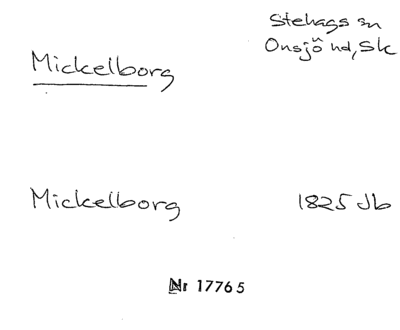 Stehags sn
Onsjö hd, Sk
Mickelborg
Mickelborg 1825 Jb
Nr 17765